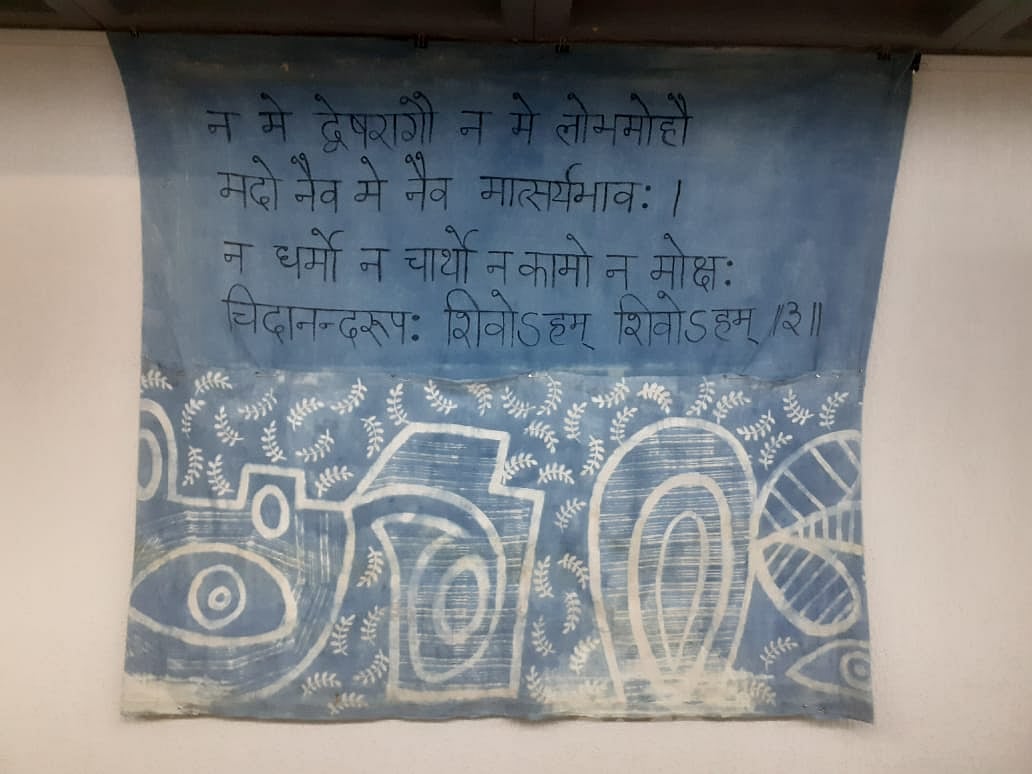 न मे द्वेषरागौ न मे लोभमोहौ
मदो नैव मे नैव मात्सर्यभावः ।
न धर्मो न चार्थो न कामो न मोक्षः
चिदानन्दरूपः शिवोऽहम् शिवोऽहम् ॥३॥